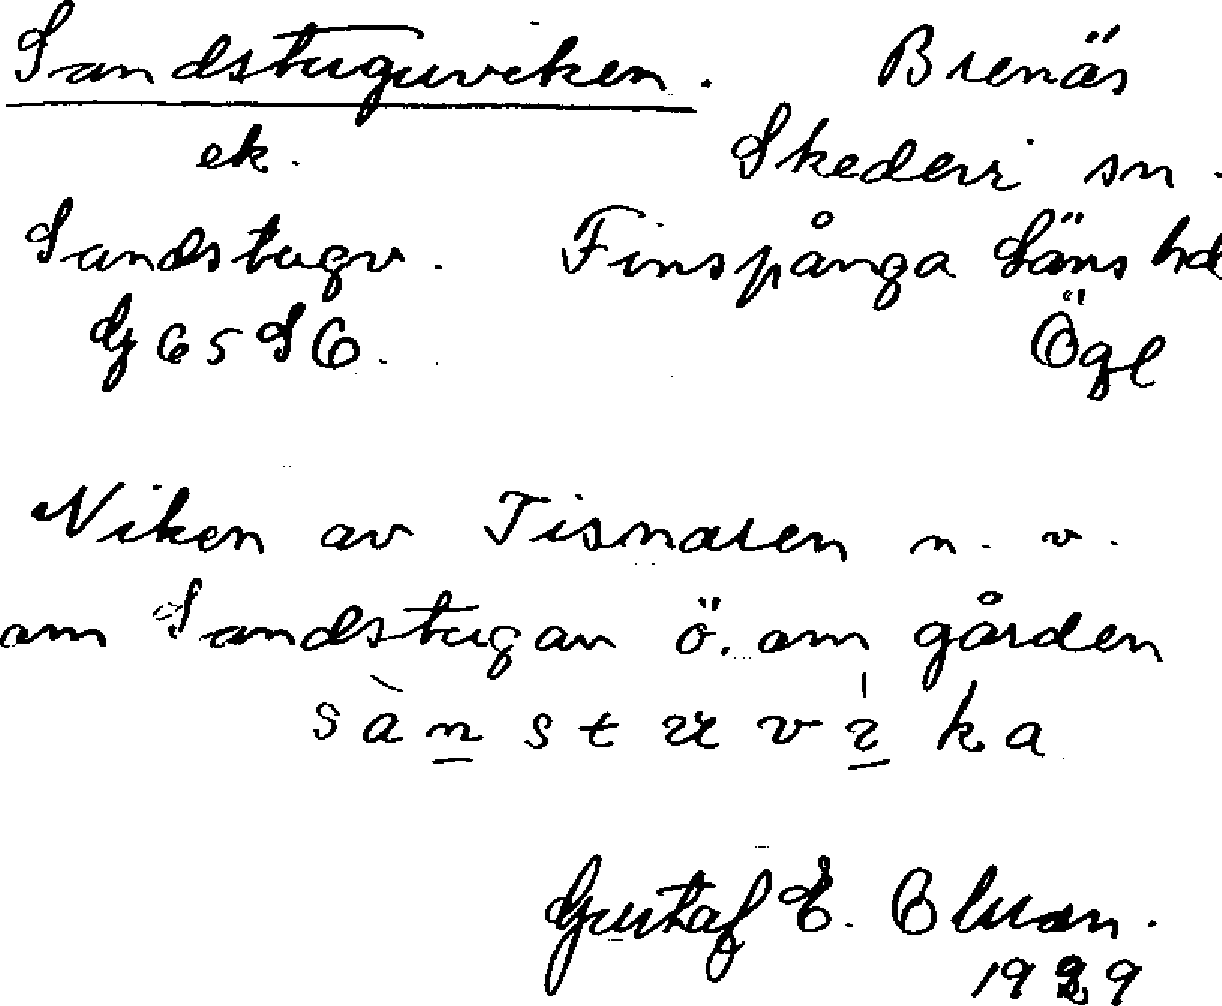 Sandstuguviken. Brenäs
ek. Skedevi sn.
Sandstugv. Finspånga läns hd
G 65 S 6. Ögl
Viken av Tisnaren n. v.
om Sandstugan ö. om gården
Gustaf E.
1929